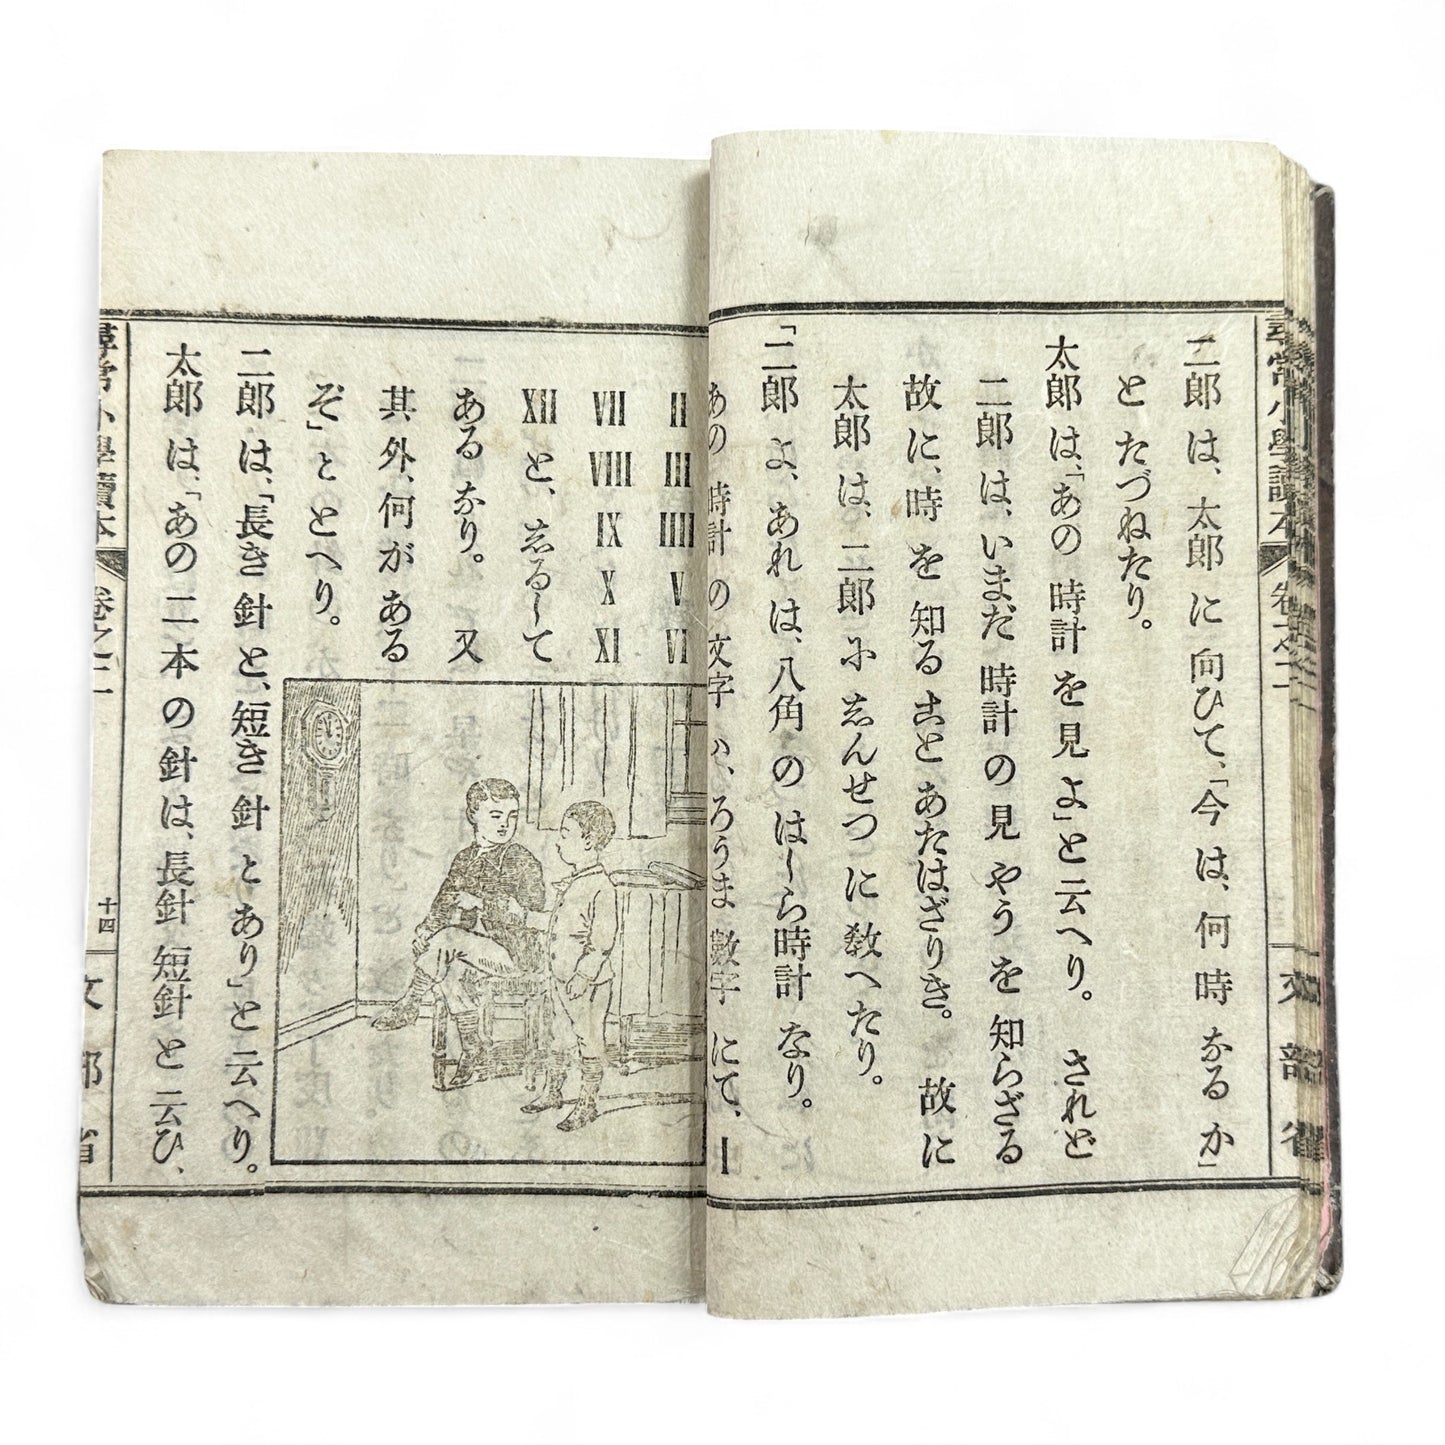 尋常小學讀本 卷之二 文部省
二郎は、太郎に向ひて、「今は、何時なるか」
とたづねたり。
太郎は、「あの時計を見よ」と云へり。されど
二郎は、いまだ時計の見やうを知らざる
故に、時を知ることあたはざりき。故に
太郎は、二郎にしんせつに教へたり。
「二郎よ、あれは、八角のはしら時計なり。
あの時計の文字ハ、ろうま數字にて、I
II III IIII V VI
VII VIII IX X XI
XIIと、しるして
あるなり。又
其外、何がある
ぞ」ととへり。
二郎は、「長き針と、短き針とあり」と云へり。
太郎は、「あの二本の針は、長針短針と云ひ、
尋常小學讀本 卷之二 十四 文部省